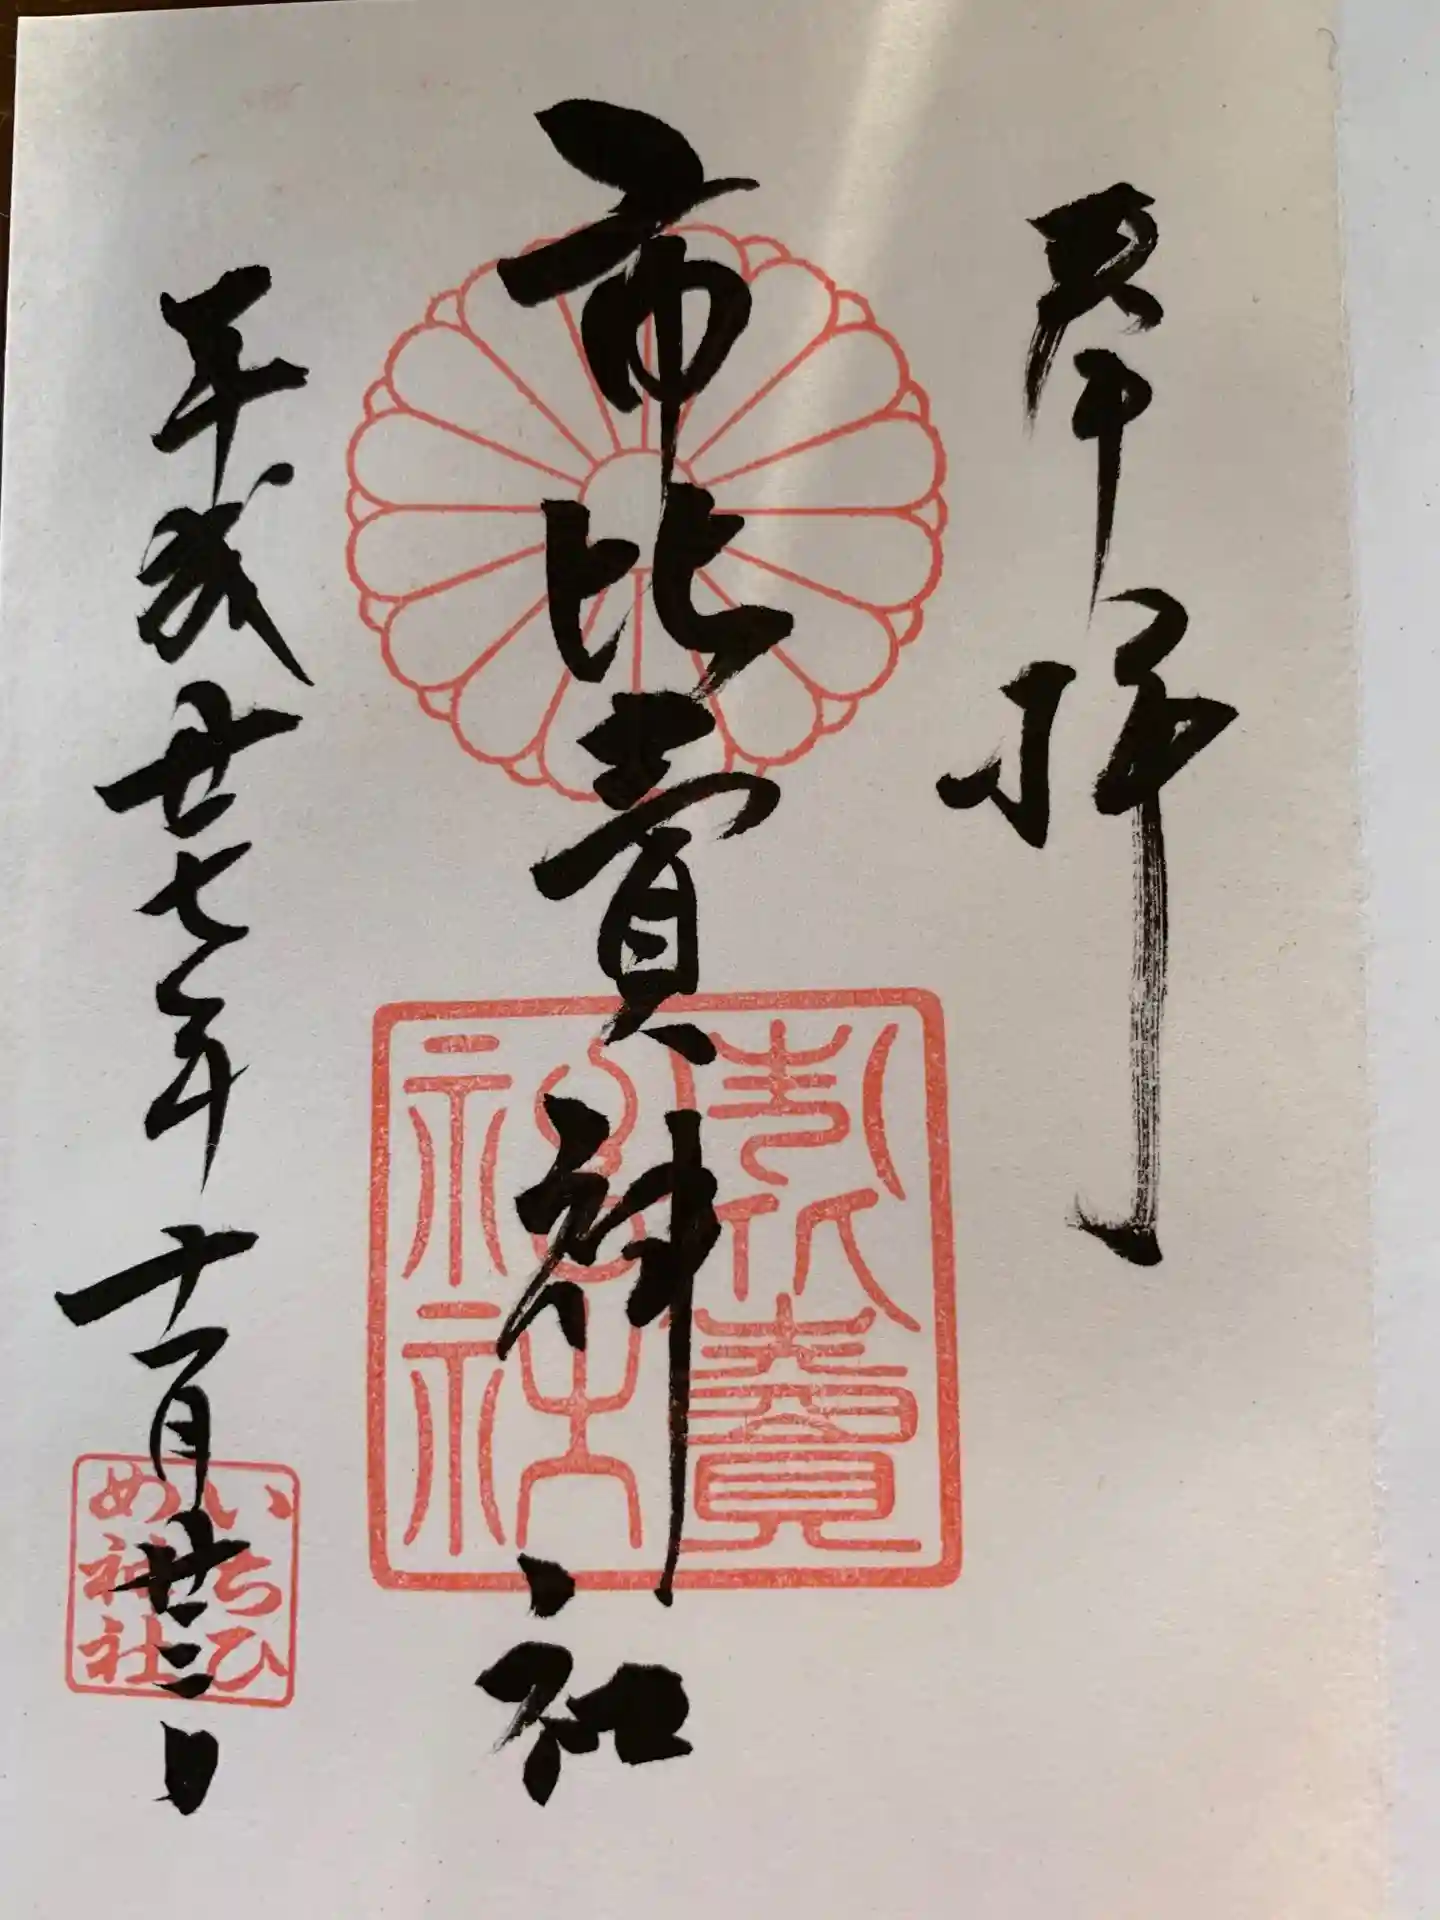 奉拝
市比賣神社
市比賣
神社
平成廿七年十一月廿二日
いちひ
め神社